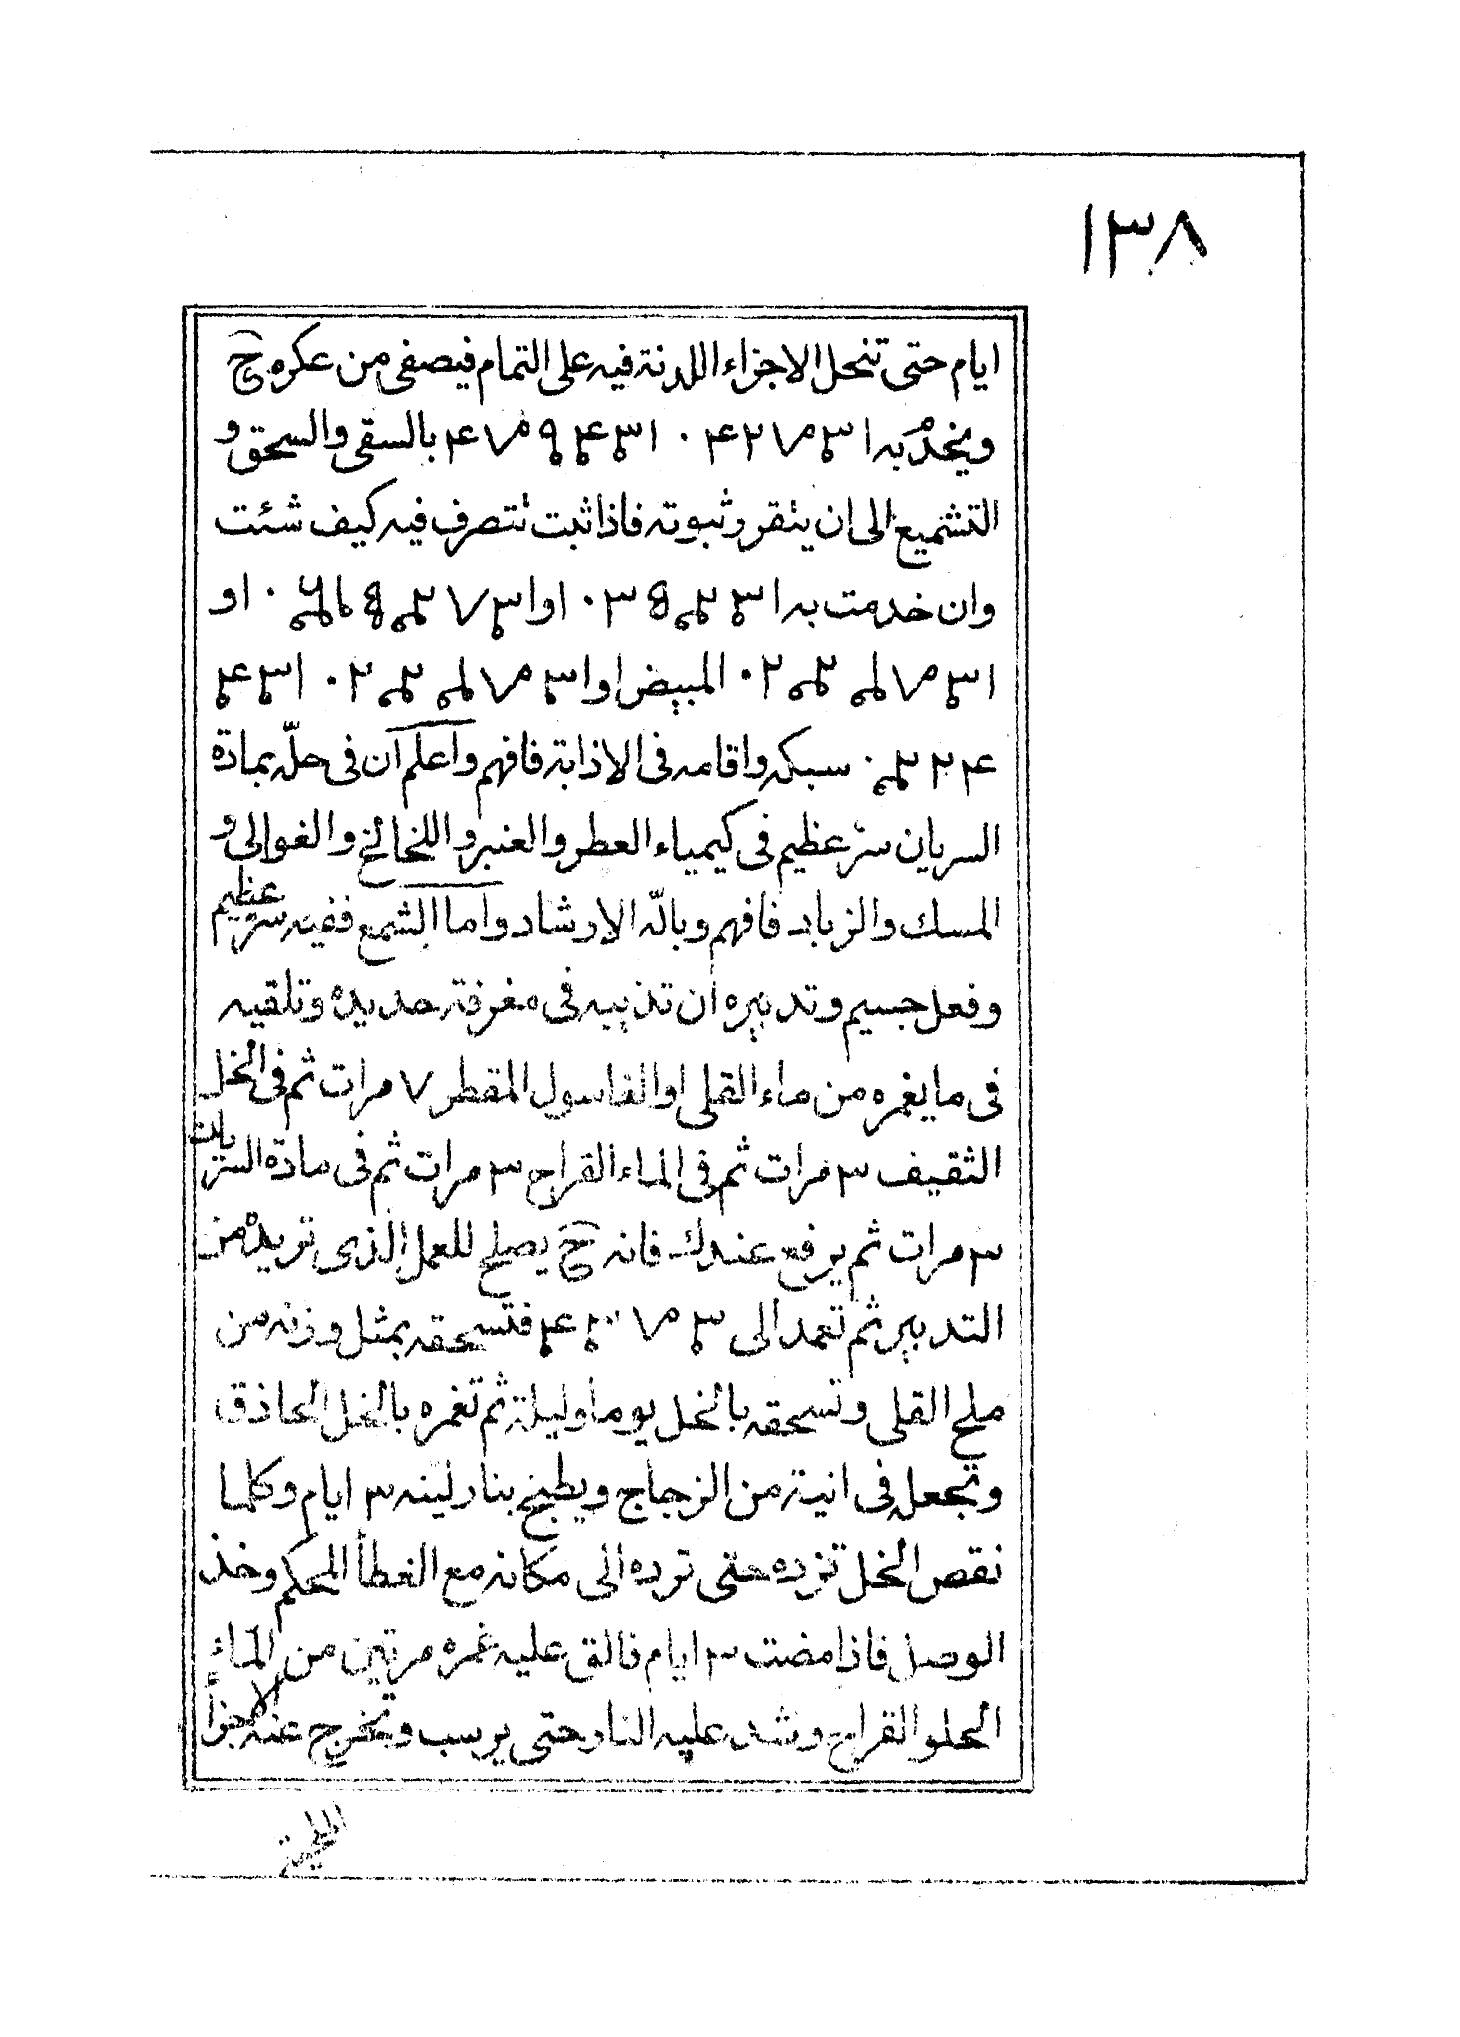 ١٣٨
ايام حتى تنحل الاجزاء اللدنة فيه على التمام فيصفى من عكره ح
ويخدم به بالسقى والسحق و
التشميع الى ان يتقرر ثبوته فاذا ثبت تتصرف فيه كيف شئت
وان خدمت به او او
المبيض او
سبكه واقامه فى الاذابة فافهم واعلم ان فى حلّه بمادة
السريان سرّ عظيم فى كيمياء العطر والعنبر واللخالخ والغوالى و
المسك والزباد فافهم وبالله الارشاد واما الشمع ففيه سر عظيم
وفعل جسيم وتدبيره ان تذيبه فى مغرفة حديده وتلقيه
فى ما يغمره من ماء القلى او الغاسول المقطر ٧ مرات ثم فى الخل
الثقيف ٣ مرات ثم فى الماء القراح ٣ مرات ثم فى مادة السريان
٣ مرات ثم يرفع عندك فانه ح يصلح للعمل الذى تريده من
التدبير ثم تعمد الى فتسحقه بمثل وزنه من
ملح القلى وتسحقه بالخل يوما وليلة ثم تغمره بالخل الحاذق
وتجعل فى انية من الزجاج ويطبخ بنار لينه ٣ ايام وكلما
نقص الخل تزده حتى ترده الى مكانه مع الغطأ المحكم وخذ
الوصل فاذا مضت ٣ ايام فالق عليه غمره مرتين من الماء
الحلو القراح وشد عليه النار حتى يرسب وتخرج عنه الاجزأ
الملحية